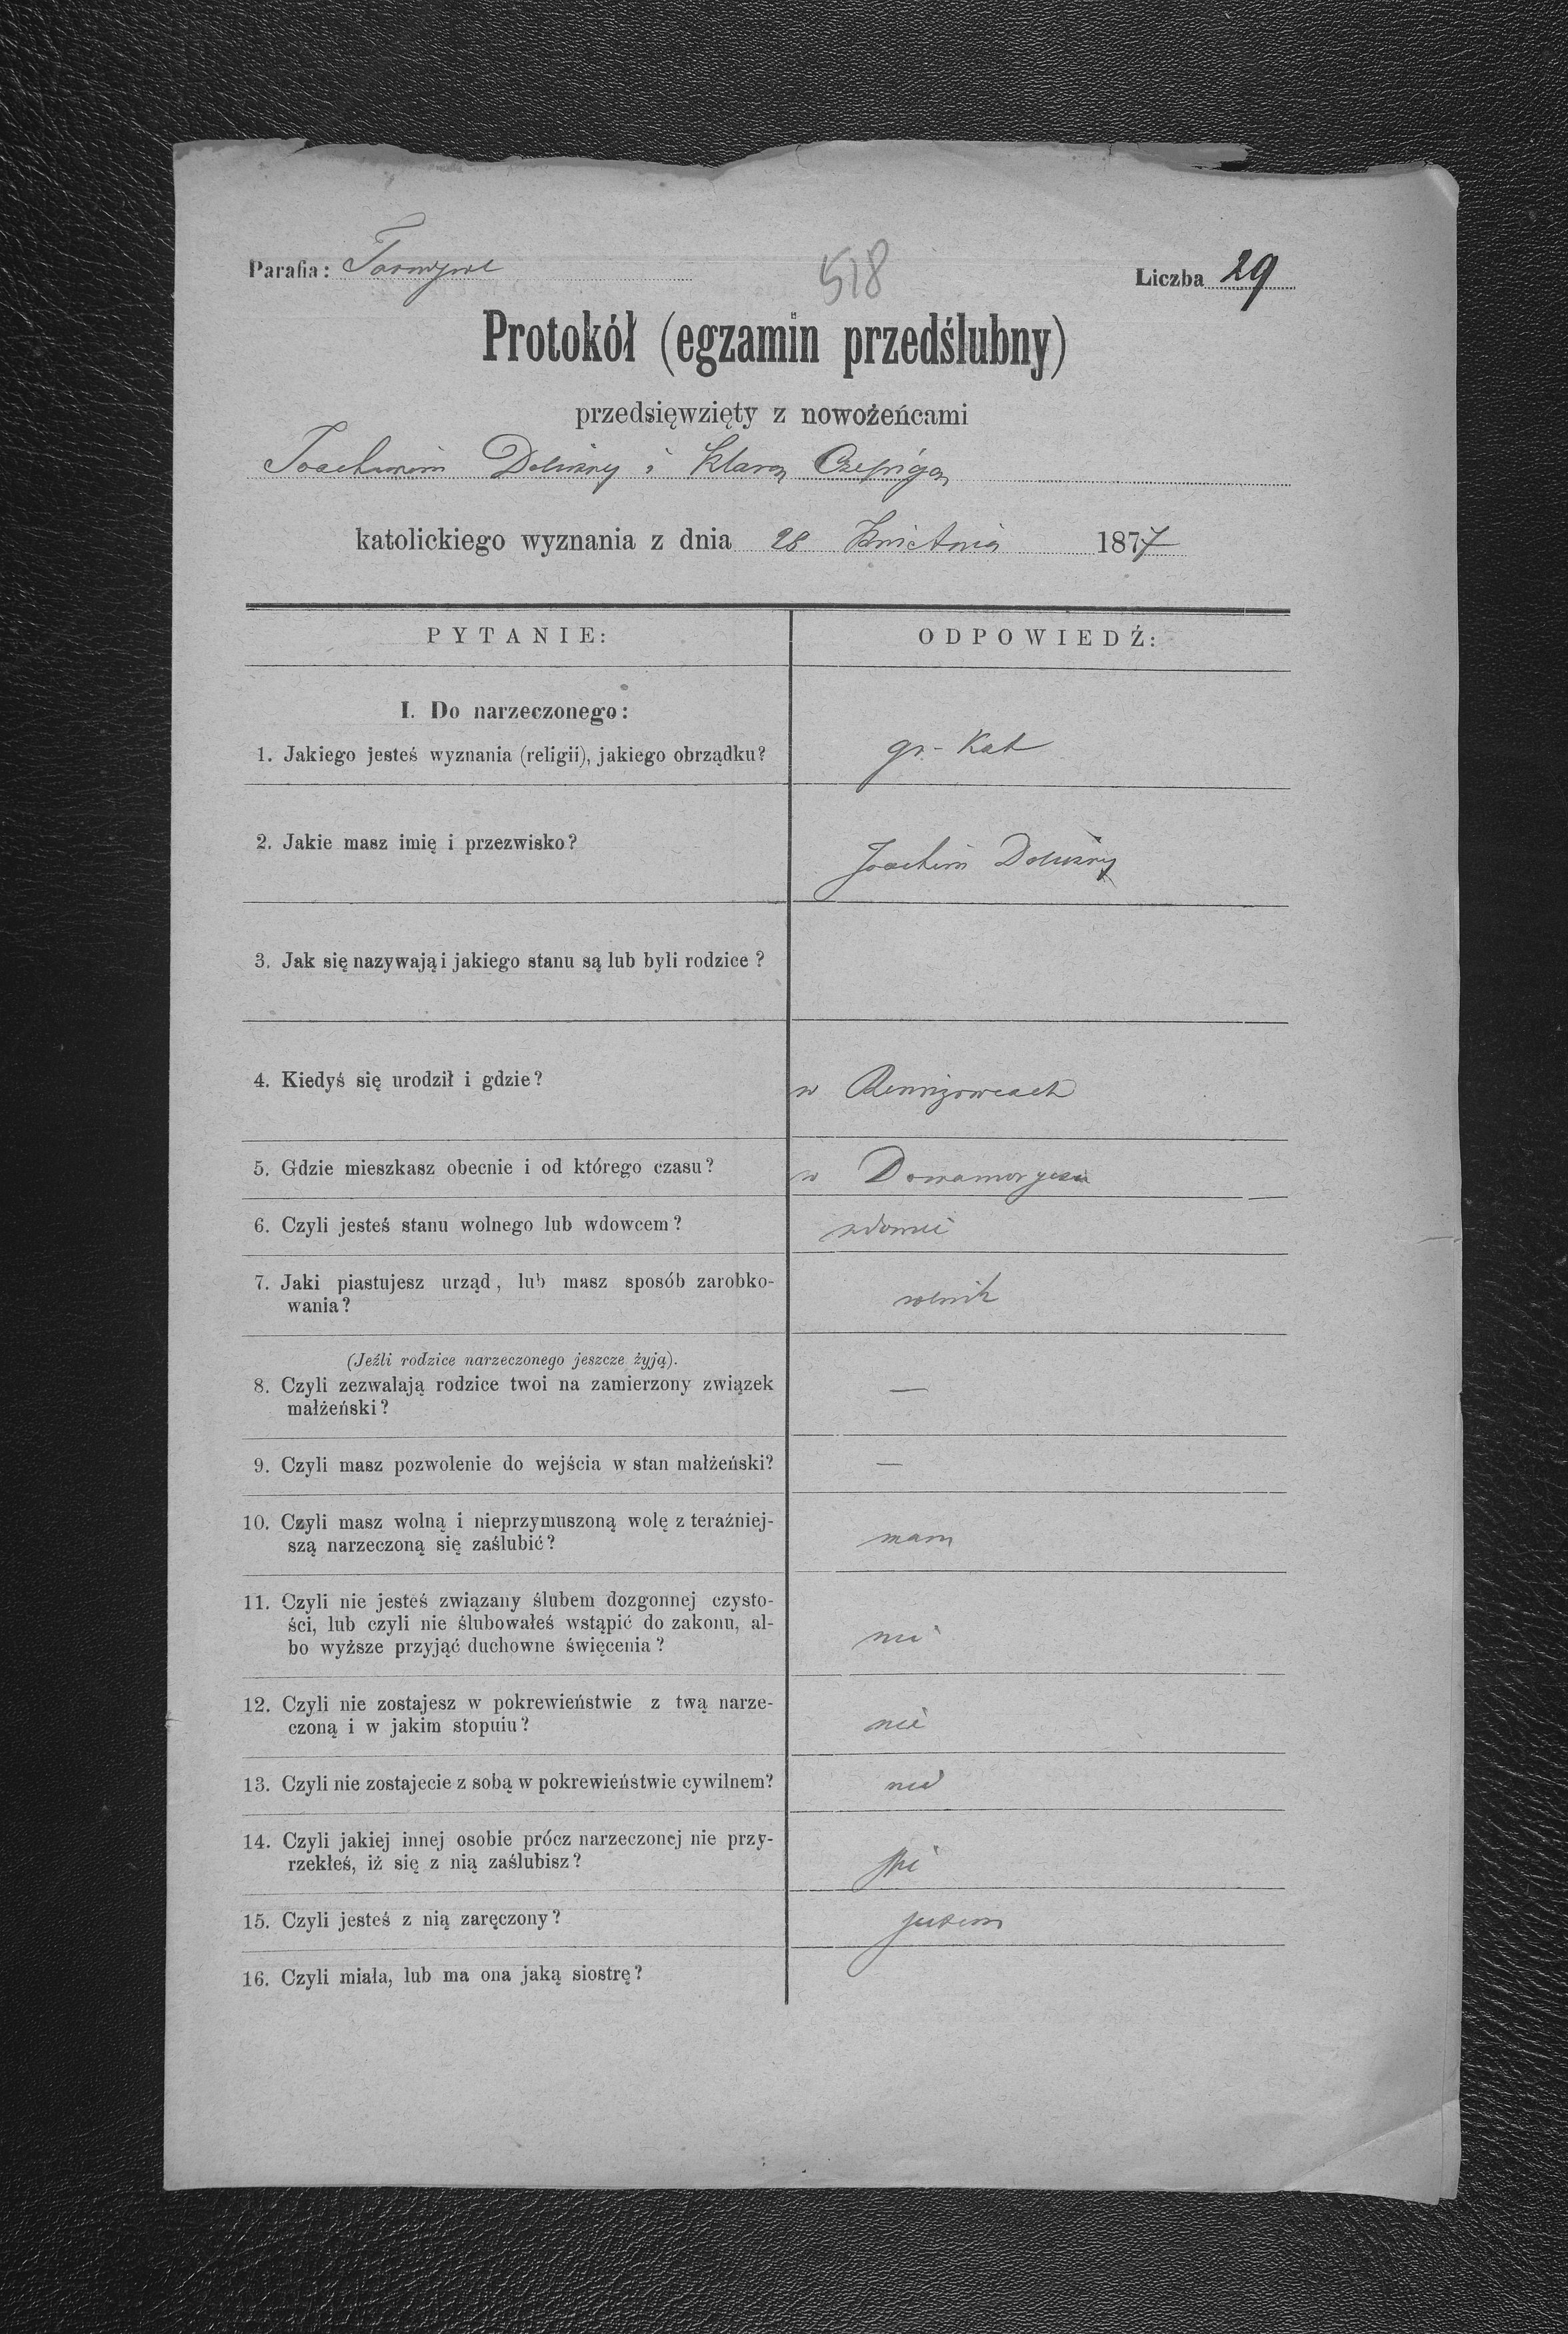 Parafia:
518
Liczba 29
Protokół (egzamin przedślubny)
przedsięwzięty z nowożeńcami
Joachimem i Klarą
katolickiego wyznania z dnia 28 Kwietnia 1877
PYTANIE:
ODPOWIEDŹ:
I. Do narzeczonego:
1. Jakiego jesteś wyznania (religii), jakiego obrządku?
gr.-Kat
2. Jakie masz imię i przezwisko?
Joachim
3. Jak się nazywają i jakiego stanu są lub byli rodzice?
4. Kiedyś się urodził i gdzie?
w Remizowcach
5. Gdzie mieszkasz obecnie i od którego czasu?
w
6. Czyli jesteś stanu wolnego lub wdowcem?
7. Jaki piastujesz urząd, lub masz sposób zarobko-
wania?
rolnik
(Jeźli rodzice narzeczonego jeszcze żyją).
8. Czyli zezwalają rodzice twoi na zamierzony związek
małżeński?
—
9. Czyli masz pozwolenie do wejścia w stan małżeński?
—
10. Czyli masz wolną i nieprzymuszoną wolę z teraźniej-
szą narzeczoną się zaślubić?
mam
11. Czyli nie jesteś związany ślubem dozgonnej czysto-
ści, lub czyli nie ślubowałeś wstąpić do zakonu, al-
bo wyższe przyjąć duchowne święcenia?
nie
12. Czyli nie zostajesz w pokrewieństwie z twą narze-
czoną i w jakim stopuiu?
nie
13. Czyli nie zostajecie z sobą w pokrewieństwie cywilnem?
nie
14. Czyli jakiej innej osobie prócz narzeczonej nie przy-
rzekłeś, iż się z nią zaślubisz?
15. Czyli jesteś z nią zaręczony?
jestem
16. Czyli miała, lub ma ona jaką siostrę?